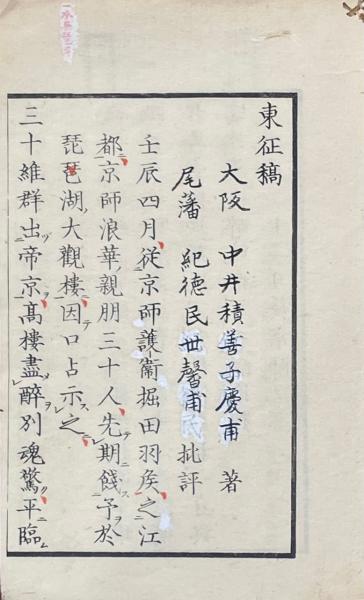 東征稿
大阪 中井積善子慶甫 著
尾藩 紀德民世馨甫批評
壬辰四月、從京師護衛堀田羽矦、之江
都、京師浪華ノ親朋三十人、先期餞予於
琵琶湖ノ大觀樓、因口占示之
三十維群出帝京、髙樓盡醉別魂驚、平臨